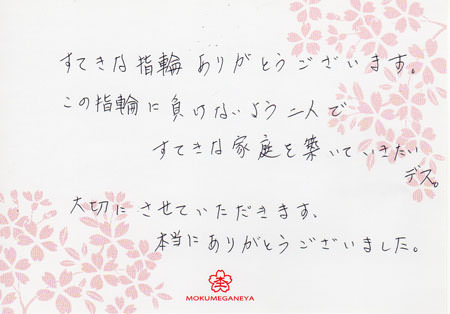 すてきな指輪ありがとうございます。
この指輪に負けないよう二人で
すてきな家庭を築いていきたい
デス。
大切にさせていただきます、
本当にありがとうございました。
MOKUMEGANEYA